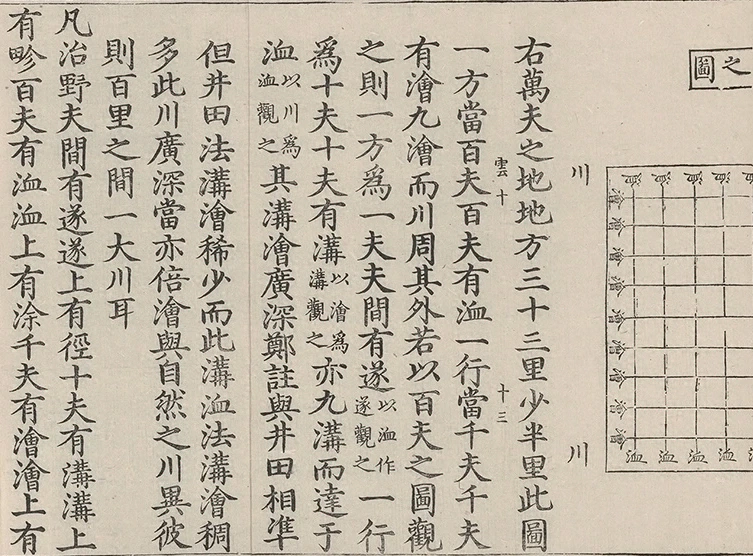 之圖
洫洫洫洫洫
澮澮澮澮澮澮澮澮澮
洫洫洫洫洫
川
川
右萬夫之地地方三十三里少半里此圖
一方當百夫百夫有洫一行當千夫千夫
雲十
十三
有澮九澮而川周其外若以百夫之圖觀
之則一方爲一夫夫間有遂以洫作遂觀之一行
爲十夫十夫有溝以澮爲溝觀之亦九溝而達于
洫以川爲洫觀之其溝澮廣深鄭註與井田相凖
但井田法溝澮稀少而此溝洫法溝澮稠
多此川廣深當亦倍澮與自然之川異彼
則百里之間一大川耳
凡治野夫間有遂遂上有徑十夫有溝溝上
有畛百夫有洫洫上有涂千夫有澮澮上有